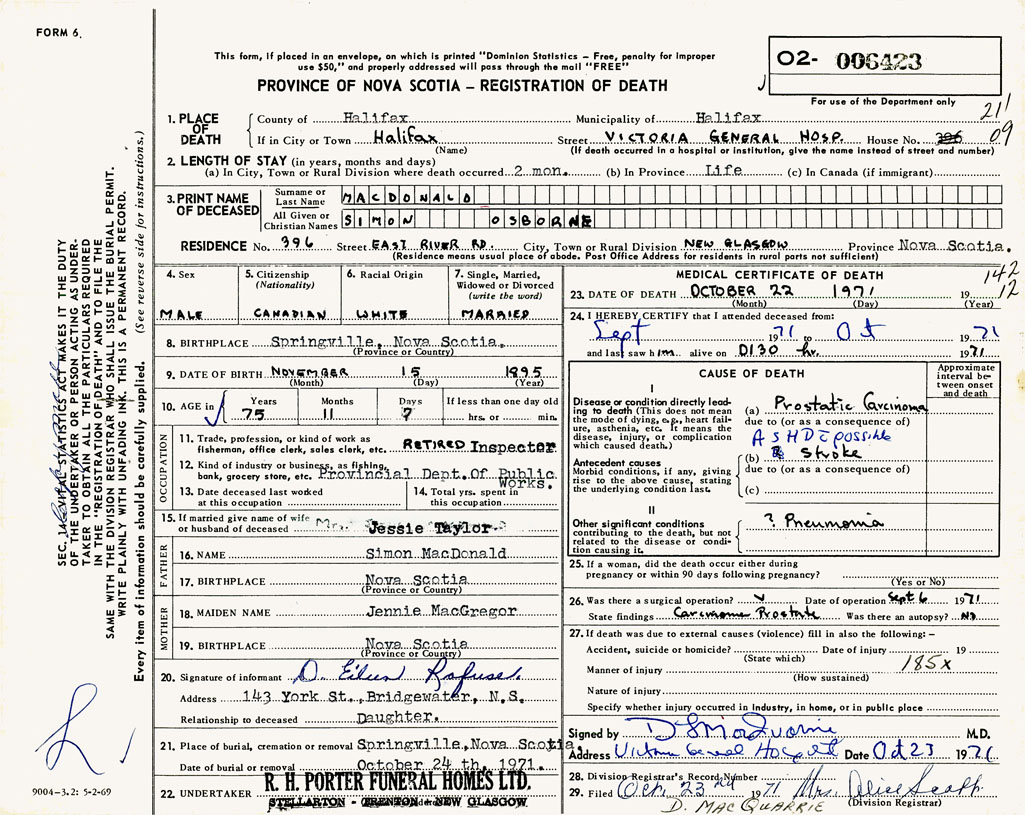 FORM 6.
This form, if placed in an envelope, on which is printed "Dominion Statistics – Free, penalty for improper
use $50," and properly addressed will pass through the mail "FREE"
PROVINCE OF NOVA SCOTIA – REGISTRATION OF DEATH
02- 006423
For use of the Department only
211
09
1. PLACE OF DEATH
County of Halifax Municipality of Halifax
If in City or Town Halifax Street VICTORIA GENERAL HOSP. House No. 396
(Name) (If death occurred in a hospital or institution, give the name instead of street and number)
2. LENGTH OF STAY (in years, months and days)
(a) In City, Town or Rural Division where death occurred 2 mon. (b) In Province Life (c) In Canada (if immigrant)
3. PRINT NAME OF DECEASED
Surname or Last Name MACDONALD
All Given or Christian Names SIMON OSBORNE
RESIDENCE No. 396 Street EAST RIVER RD. City, Town or Rural Division NEW GLASGOW Province Nova Scotia.
(Residence means usual place of abode. Post Office Address for residents in rural parts not sufficient)
4. Sex
MALE
5. Citizenship
(Nationality)
CANADIAN
6. Racial Origin
WHITE
7. Single, Married,
Widowed or Divorced
(write the word)
MARRIED
8. BIRTHPLACE Springville, Nova Scotia.
(Province or Country)
9. DATE OF BIRTH NOVEMBER 15 1895
(Month) (Day) (Year)
10. AGE in Years Months Days If less than one day old
75 11 7 hrs. or min.
OCCUPATION
11. Trade, profession, or kind of work as
fisherman, office clerk, sales clerk, etc. RETIRED Inspector
12. Kind of industry or business, as fishing,
bank, grocery store, etc. Provincial Dept. Of Public
Works.
13. Date deceased last worked
at this occupation
14. Total yrs. spent in
this occupation
15. If married give name of wife
or husband of deceased Mrs. Jessie Taylor
FATHER
16. NAME Simon MacDonald
17. BIRTHPLACE Nova Scotia
(Province or Country)
MOTHER
18. MAIDEN NAME Jennie MacGregor
19. BIRTHPLACE Nova Scotia
(Province or Country)
20. Signature of informant D. Eileen Rafuse.
Address 143 York St., Bridgewater, N.S.
Relationship to deceased Daughter.
21. Place of burial, cremation or removal Springville, Nova Scotia.
Date of burial or removal October 24 th. 1971.
22. UNDERTAKER R. H. PORTER FUNERAL HOMES LTD.
STELLARTON - TRENTON - NEW GLASGOW
MEDICAL CERTIFICATE OF DEATH
142
12
23. DATE OF DEATH OCTOBER 22 1971 19
(Month) (Day) (Year)
24. I HEREBY CERTIFY that I attended deceased from:
Sept 1971 to Oct 1971
and last saw him alive on 0130 hr. 1971
CAUSE OF DEATH
Approximate
interval be-
tween onset
and death
I
Disease or condition directly lead-
ing to death (This does not mean
the mode of dying, e.g., heart fail-
ure, asthenia, etc. It means the
disease, injury, or complication
which caused death.)
(a) Prostatic Carcinoma
due to (or as a consequence of)
ASHD c possible
(b) Stroke
due to (or as a consequence of)
(c)
Antecedent causes
Morbid conditions, if any, giving
rise to the above cause, stating
the underlying condition last.
II
Other significant conditions
contributing to the death, but not
related to the disease or condi-
tion causing it.
? Pneumonia
25. If a woman, did the death occur either during
pregnancy or within 90 days following pregnancy?
(Yes or No)
26. Was there a surgical operation? Date of operation Sept 6 1971
State findings Carcinoma Prostate Was there an autopsy? No
27. If death was due to external causes (violence) fill in also the following: –
Accident, suicide or homicide? Date of injury 19
(State which)
185x
Manner of injury
(How sustained)
Nature of injury
Specify whether injury occurred in industry, in home, or in public place
Signed by M.D.
Address Victoria General Hospital Date Oct 23 1971
28. Division Registrar's Record Number
29. Filed Oct. 23rd 1971 Mrs. Alice Scott
(Division Registrar)
D. MACQUARRIE
SEC. VITAL STATISTICS ACT MAKES IT THE DUTY
OF THE UNDERTAKER OR PERSON ACTING AS UNDER-
TAKER TO OBTAIN ALL THE PARTICULARS REQUIRED
IN THE "REGISTRATION OF DEATH" AND TO FILE THE
SAME WITH THE DIVISION REGISTRAR WHO SHALL ISSUE THE BURIAL PERMIT.
WRITE PLAINLY WITH UNFADING INK. THIS IS A PERMANENT RECORD.
Every item of information should be carefully supplied. (See reverse side for instructions.)
9004-3.2: 5-2-69